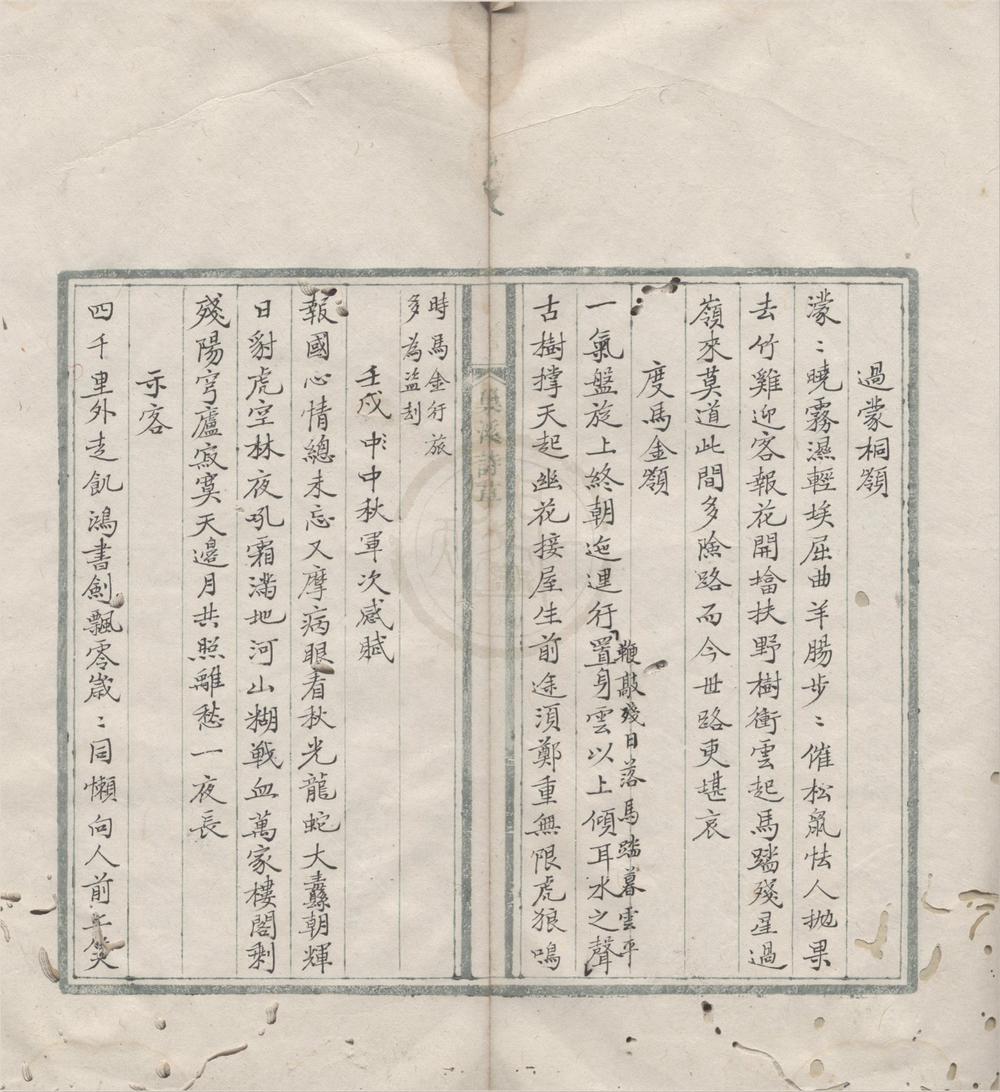 過蒙桐嶺
濛〻曉霧濕輕埃屈曲羊腸步〻催松鼠怯人拋果
去竹雞迎客報花開墖扶野樹衝雲起馬踏殘星過
嶺來莫道此間多險路而今世路更堪哀
度馬金嶺
一氣盤旋上終朝迤邐行置身雲以上傾耳水之聲
鞭敲殘日落馬踏暮雲平
古樹撐天起幽花接屋生前途須鄭重無限虎狼鳴
詩草
時馬金行旅
多為盜刦
壬戌中中秋軍次感賦
報國心情總未忘又摩病眼看秋光龍蛇大纛朝輝
日豺虎空林夜吼霜滿地河山糊戰血萬家樓閣剩
殘陽穹廬寂寞天邊月共照離愁一夜長
示客
四千里外走飢鴻書劍飄零歲〻同懶向人前工笑